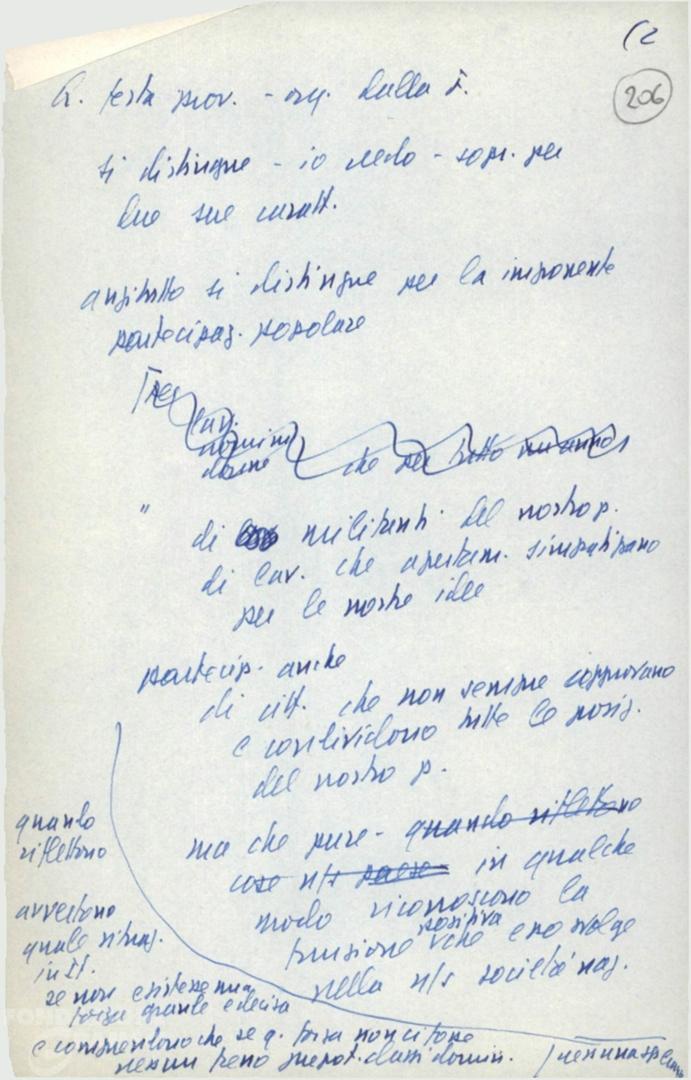 (2
206
Q. festa prov. - org. dalla F.
si distingue - io credo - sopr. per
due sue caratt.
anzitutto si distingue per la imponente
partecipaz. popolare
Per
lav.
uomini
donne che per tutto un anno
" di militanti del nostro p.
di lav. che apertam. simpatizzano
per le nostre idee
partecip. anche
di citt. che non sempre approvano
e condividono tutte le posiz.
del nostro p.
ma che pure - quando riflettono
cose n/s paese in qualche
modo riconoscono la
funzione positiva che esso svolge
nella n/s società naz.
quando
riflettono
avvertono
quale situaz.
in It.
se non esistesse una
forza grande e decisa
e comprendono che se q. forza non ci fosse
nessun freno prepot. classi domin.
nessuna